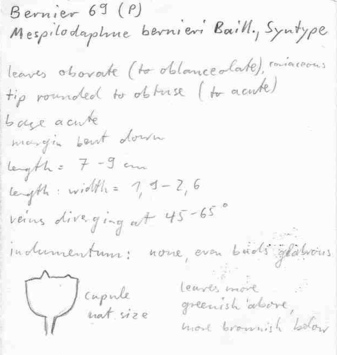 Bernier 69 (P)
Mespilodaphne bernieri Baill., Syntype
leaves obovate (to oblanceolate), coriaceous
tip rounded to obtuse (to acute)
base acute
margin bent down
length = 7-9 cm
length : width = 1,9-2,6
veins diverging at 45-65°
indumentum: none, even buds glabrous
cupule
nat size
leaves more
greenish above,
more brownish below